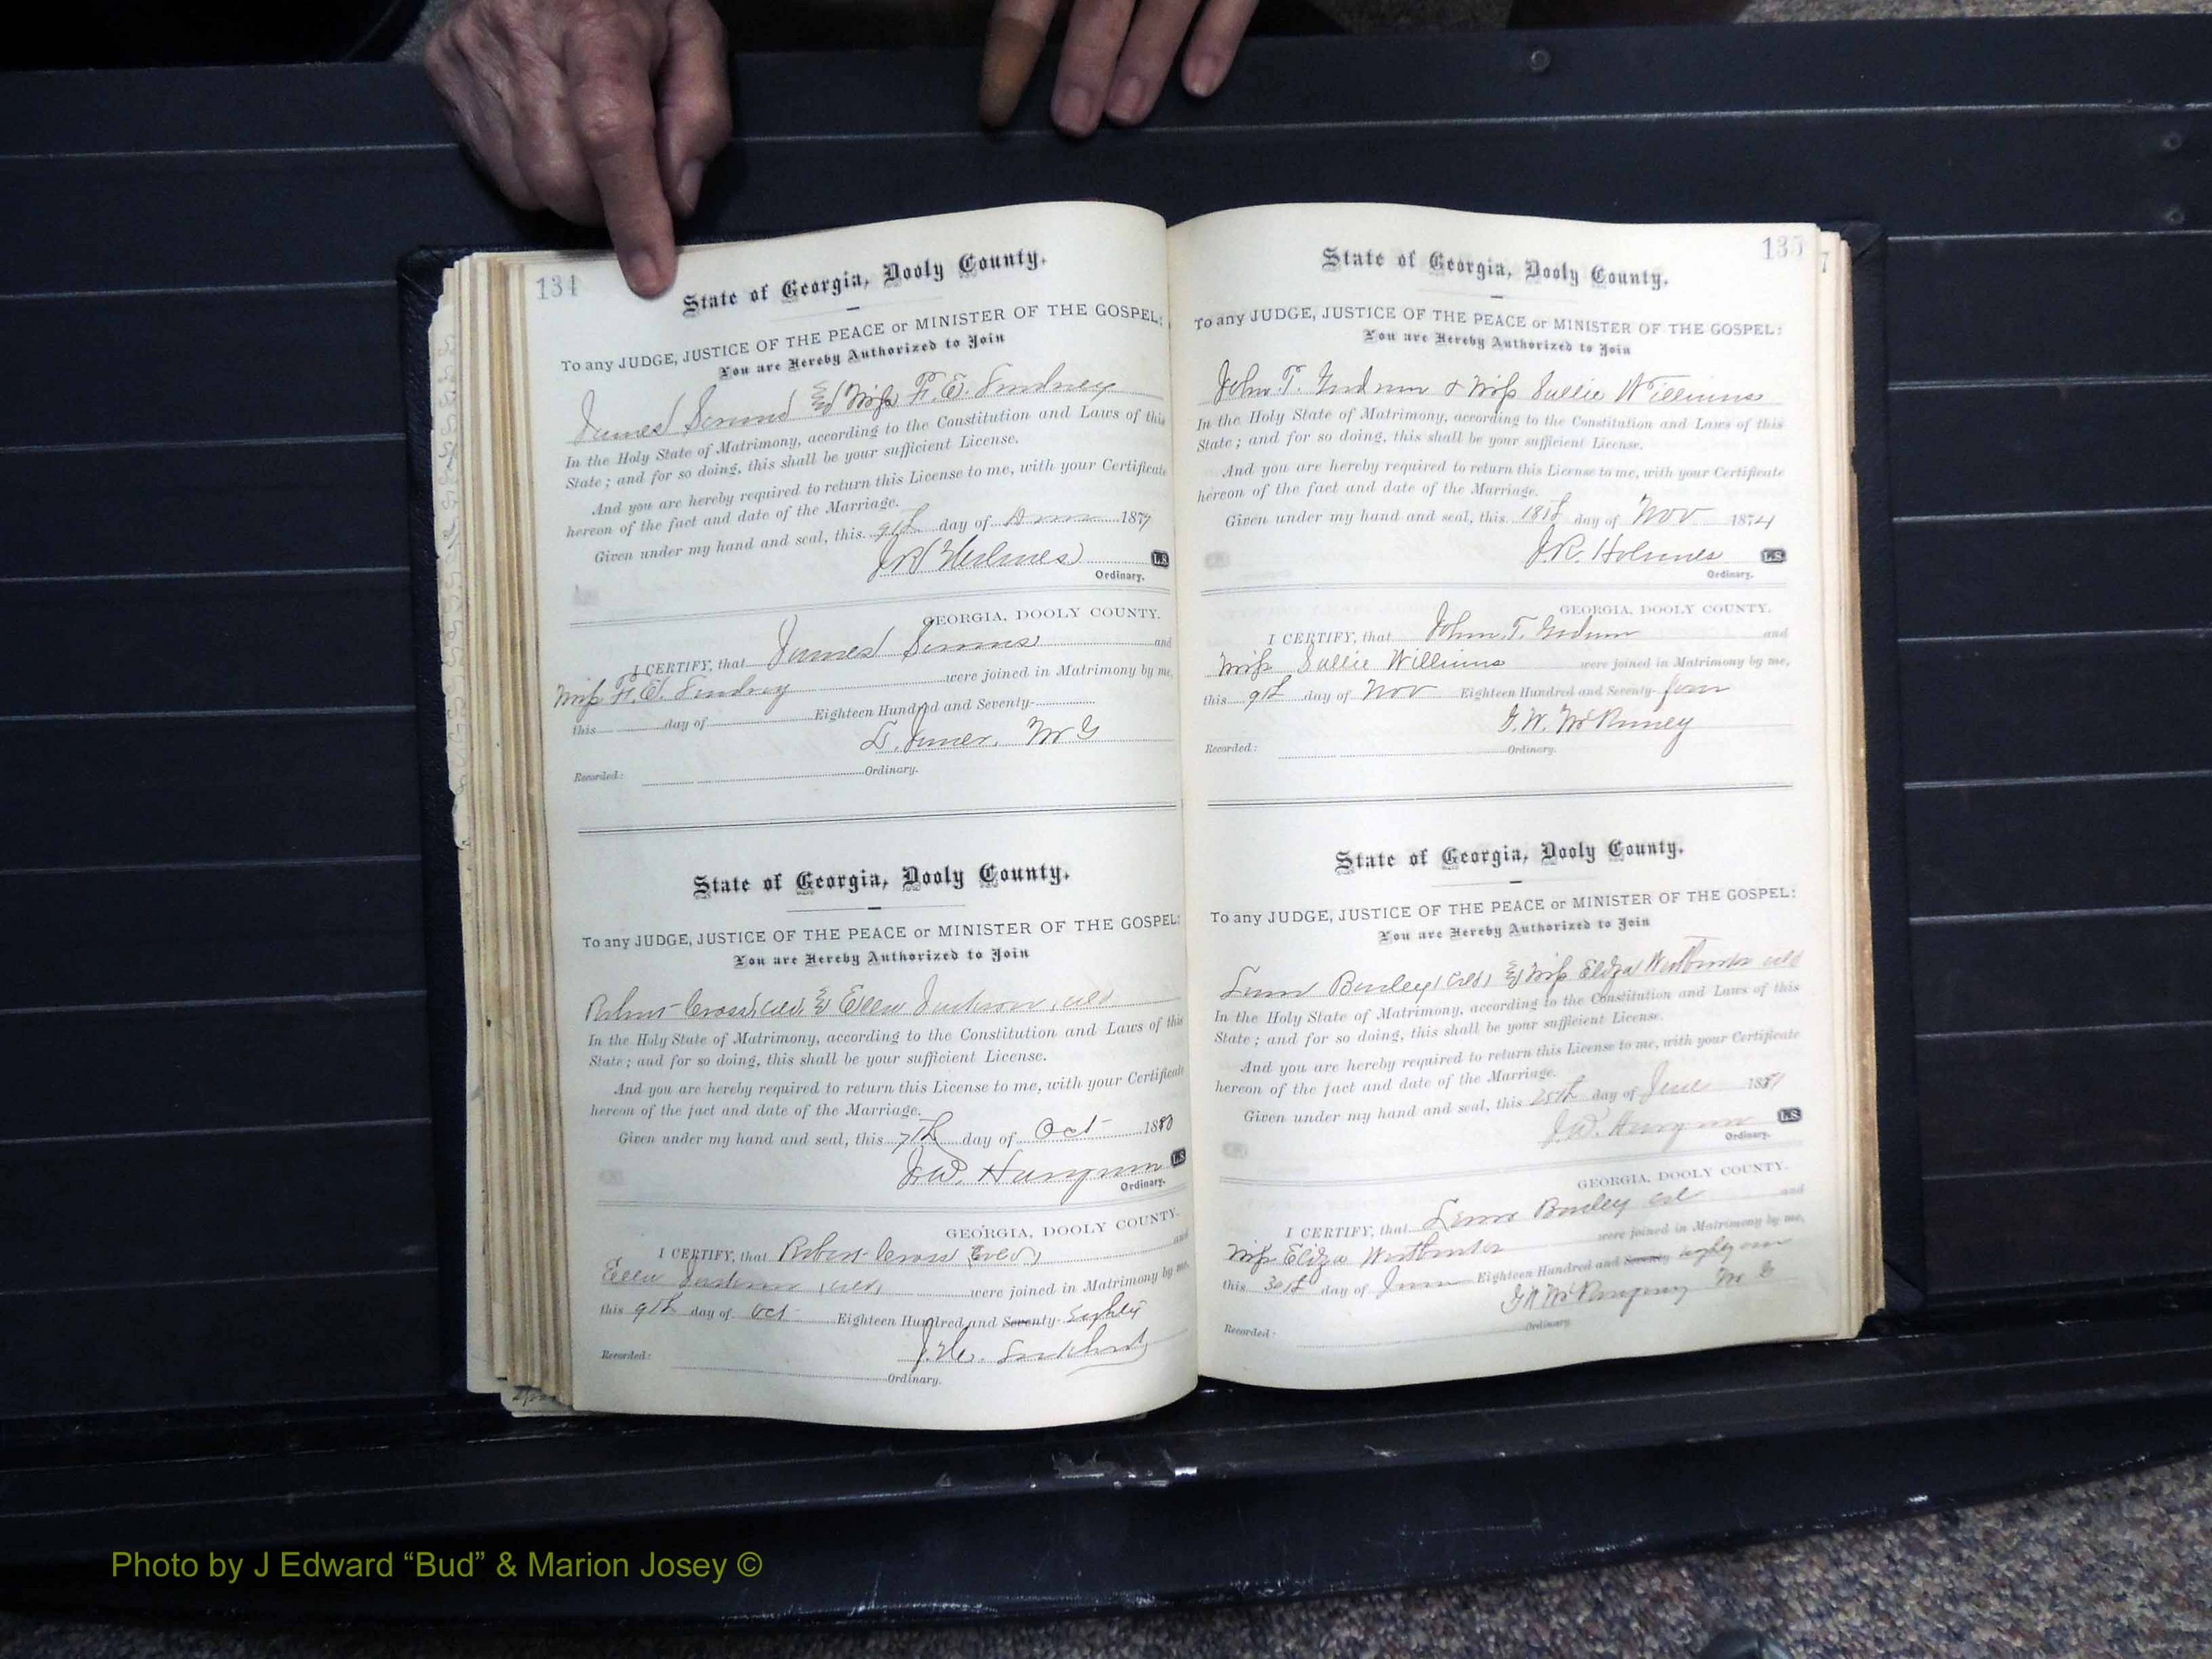 134
State of Georgia, Dooly County.
To any JUDGE, JUSTICE OF THE PEACE or MINISTER OF THE GOSPEL:
You are Hereby Authorized to Join
James & Miss F. E.
In the Holy State of Matrimony, according to the Constitution and Laws of this
State; and for so doing, this shall be your sufficient License.
And you are hereby required to return this License to me, with your Certificate
hereon of the fact and date of the Marriage.
Given under my hand and seal, this 9th day of 187
Holmes L.S.
Ordinary.
GEORGIA, DOOLY COUNTY.
I CERTIFY, that James Simms and
Miss F. E. were joined in Matrimony by me,
this day of Eighteen Hundred and Seventy-
M G
Recorded: Ordinary.
State of Georgia, Dooly County.
To any JUDGE, JUSTICE OF THE PEACE or MINISTER OF THE GOSPEL:
You are Hereby Authorized to Join
Robert Cross, & Ellen
In the Holy State of Matrimony, according to the Constitution and Laws of this
State; and for so doing, this shall be your sufficient License.
And you are hereby required to return this License to me, with your Certificate
hereon of the fact and date of the Marriage.
Given under my hand and seal, this 7th day of Oct 1880
J.W. L.S.
Ordinary.
GEORGIA, DOOLY COUNTY.
I CERTIFY, that Robert Cross and
were joined in Matrimony by me,
this 9th day of Oct Eighteen Hundred and Seventy- Eighty
Recorded: Ordinary.
135
State of Georgia, Dooly County.
To any JUDGE, JUSTICE OF THE PEACE or MINISTER OF THE GOSPEL:
You are Hereby Authorized to Join
John T. & Miss Sallie Williams
In the Holy State of Matrimony, according to the Constitution and Laws of this
State; and for so doing, this shall be your sufficient License.
And you are hereby required to return this License to me, with your Certificate
hereon of the fact and date of the Marriage.
Given under my hand and seal, this day of Nov 1874
J.R. Holmes L.S.
Ordinary.
GEORGIA, DOOLY COUNTY.
I CERTIFY, that John T. and
Miss Sallie Williams were joined in Matrimony by me,
this 9th day of Nov Eighteen Hundred and Seventy- four
Recorded: Ordinary.
State of Georgia, Dooly County.
To any JUDGE, JUSTICE OF THE PEACE or MINISTER OF THE GOSPEL:
You are Hereby Authorized to Join
& Miss Eliza
In the Holy State of Matrimony, according to the Constitution and Laws of this
State; and for so doing, this shall be your sufficient License.
And you are hereby required to return this License to me, with your Certificate
hereon of the fact and date of the Marriage.
Given under my hand and seal, this 25th day of June 1881
J.W. L.S.
Ordinary.
GEORGIA, DOOLY COUNTY.
I CERTIFY, that and
Miss Eliza were joined in Matrimony by me,
this 30th day of June Eighteen Hundred and Seventy eighty one
M G
Recorded: Ordinary.
Photo by J Edward “Bud” & Marion Josey ©